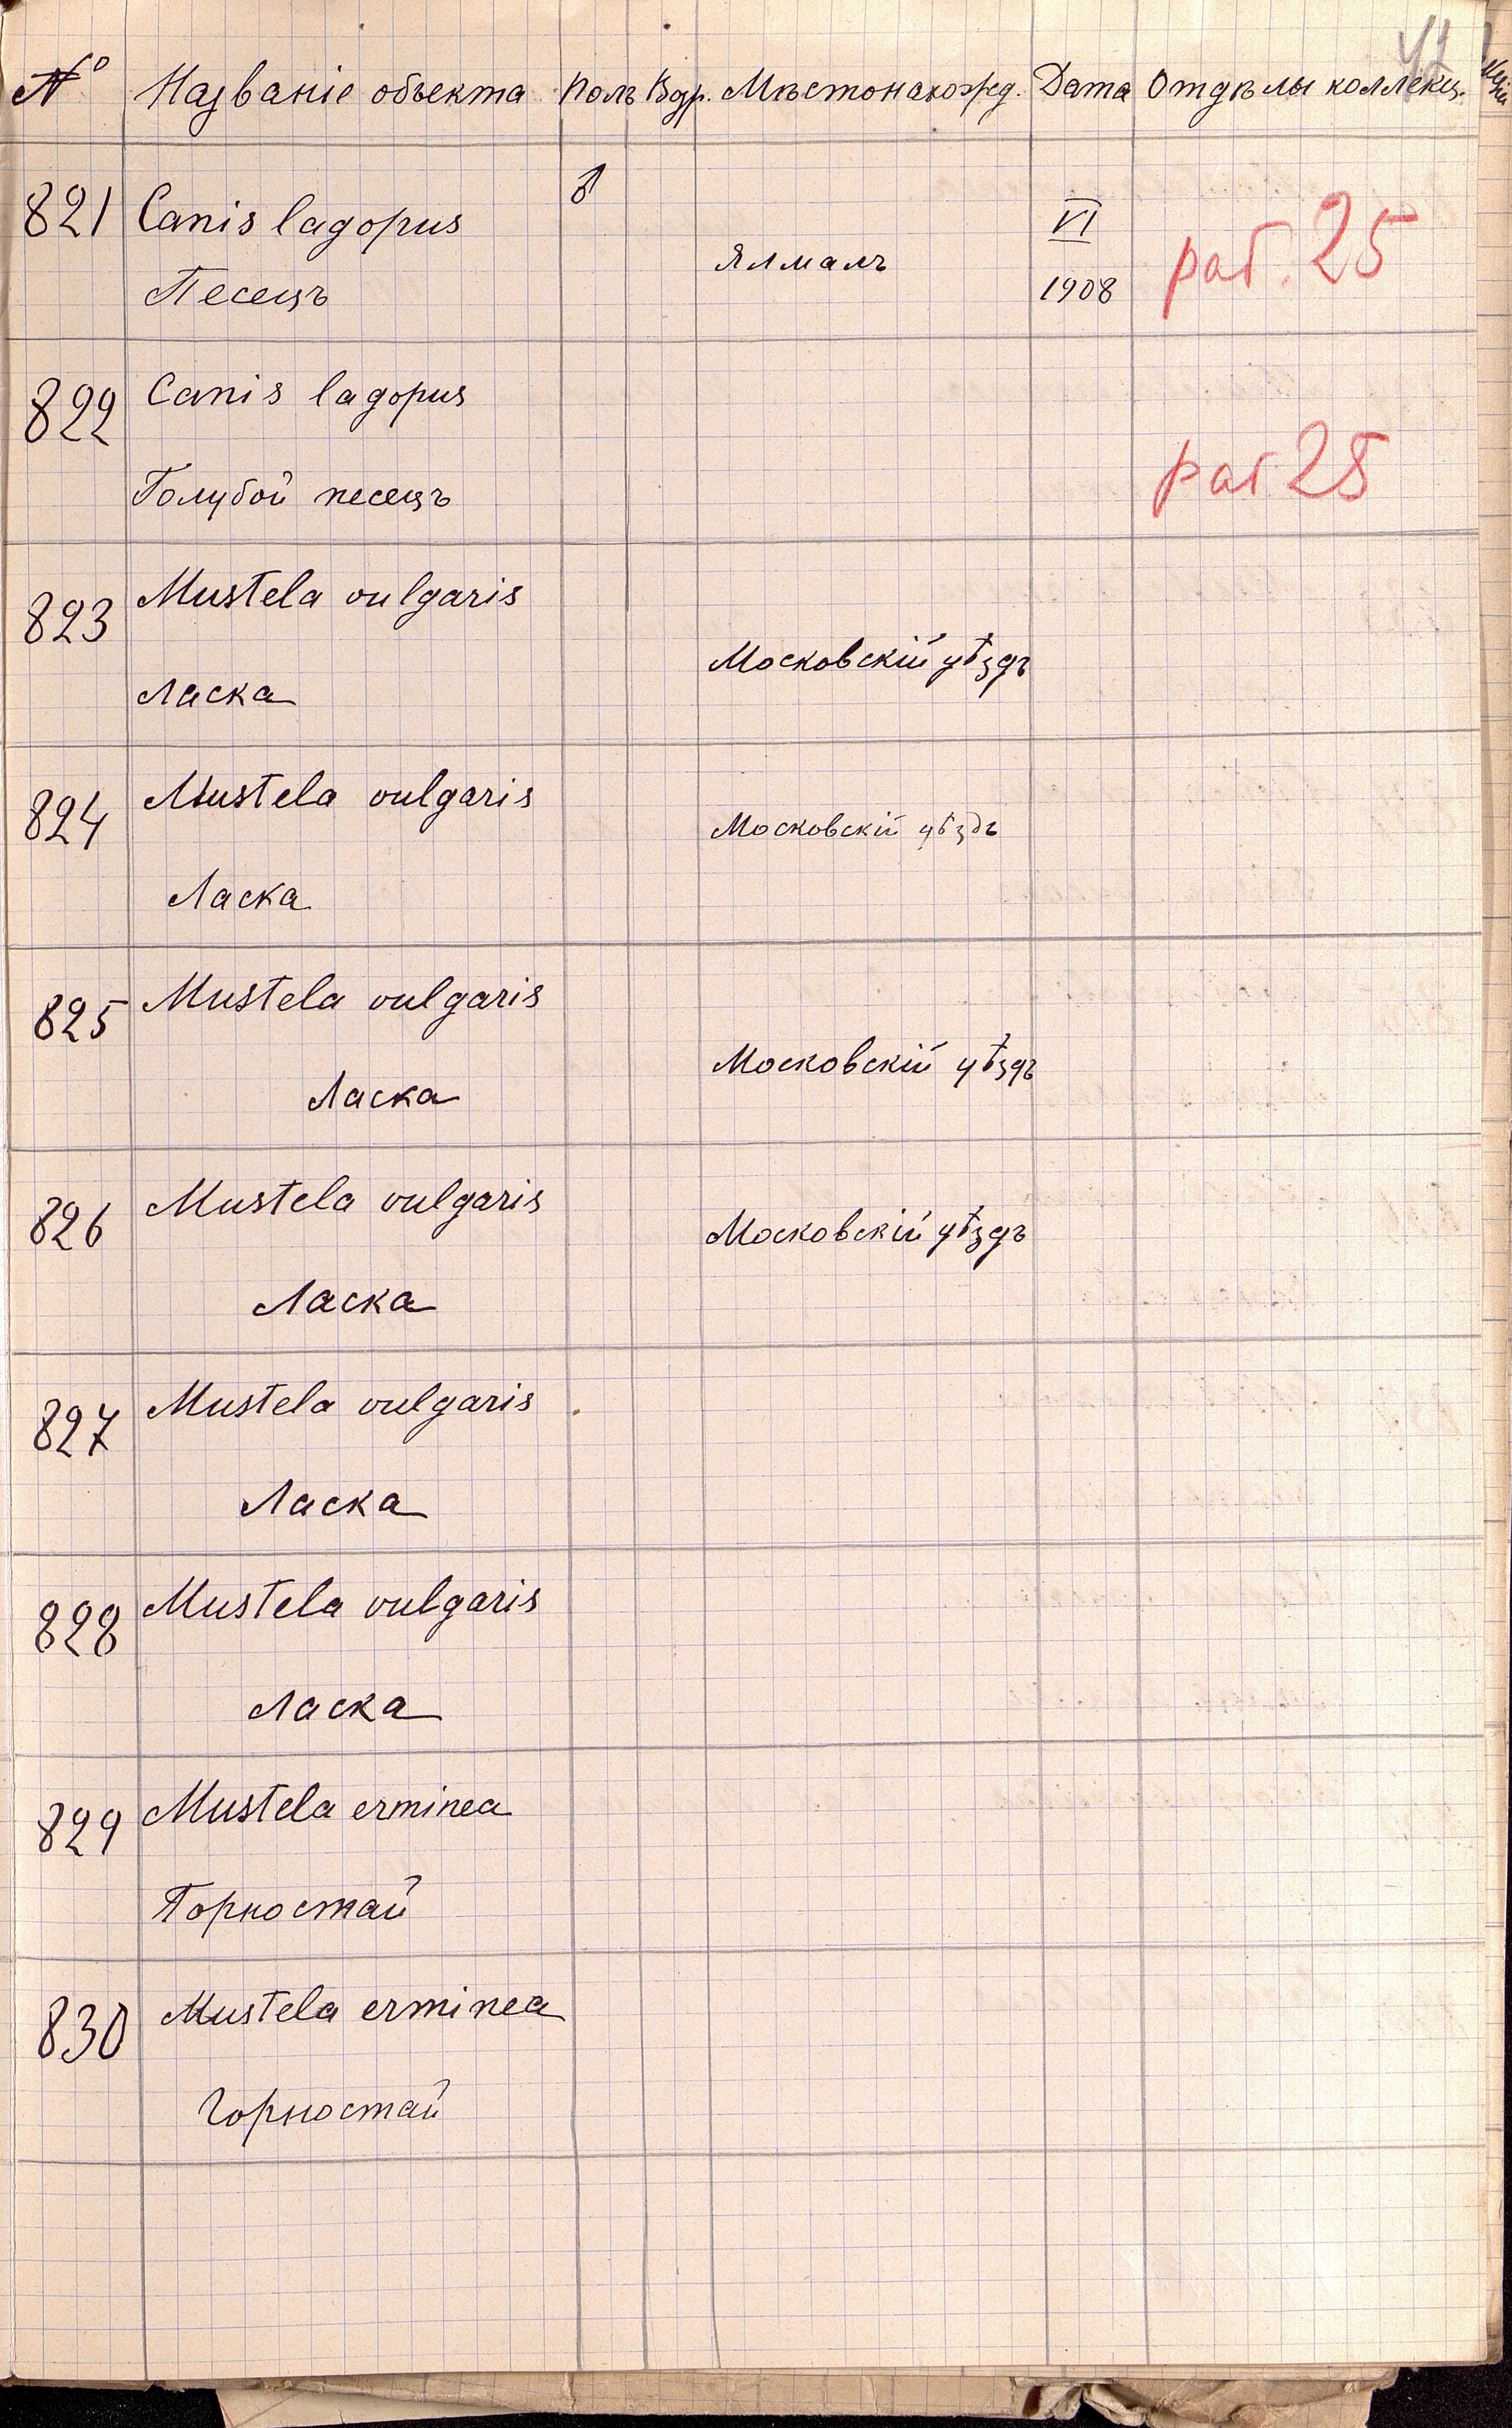 № Названіе объекта Полъ Вдр. Мѣстонахожд. Дата Отдѣлы коллекц.
821 Canis lagopus ♂
Песецъ Ялмалъ VI
1908
822 Canis lagopus
Голубой песецъ
823 Mustela vulgaris
Ласка Московскій уѣздъ
824 Mustela vulgaris Московскій уѣздъ
Ласка
825 Mustela vulgaris
Ласка Московскій уѣздъ
826 Mustela vulgaris Московскій уѣздъ
Ласка
827 Mustela vulgaris
Ласка
828 Mustela vulgaris
Ласка
829 Mustela erminea
Горностай
830 Mustela erminea
Горностай